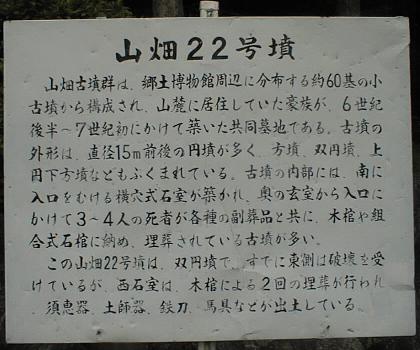 山畑22号墳
山畑古墳群は、郷土博物館周辺に分布する約60基の小
古墳から構成され、山麓に居住していた豪族が、6世紀
後半〜7世紀初にかけて築いた共同墓地である。古墳の
外形は、直径15m前後の円墳が多く、方墳、双円墳、上
円下方墳などもふくまれている。古墳の内部には、南に
入口をむける横穴式石室が築かれ、奥の玄室から入口に
かけて3〜4人の死者が各種の副葬品と共に、木棺や組
合式石棺に納め、埋葬されている古墳が多い。
この山畑22号墳は、双円墳で、すでに東側は破壊を受
けているが、西石室は、木棺による2回の埋葬が行われ
、須恵器、土師器、鉄刀、馬具などが出土している。